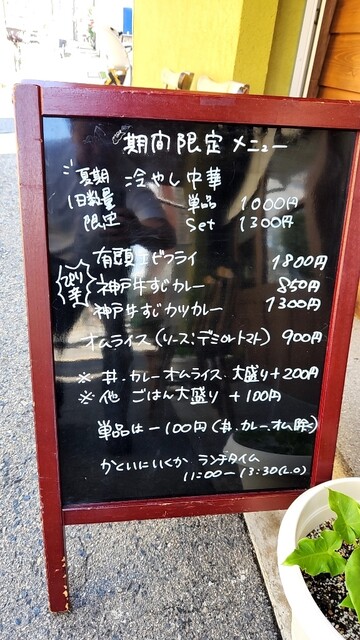 期間限定メニュー
夏期 冷やし中華
1日数量 単品 1000円
限定 Set 1300円
有頭エビフライ 1800円
神戸牛すじカレー 850円
神戸牛すじカツカレー 1300円
オムライス(ソース:デミorトマト) 900円
※ 丼・カレー オムライス 大盛り+200円
※ 他 ごはん大盛り +100円
単品は-100円(丼・カレーオム除く)
かどいにいくか ランチタイム
11:00-13:30(L.O)